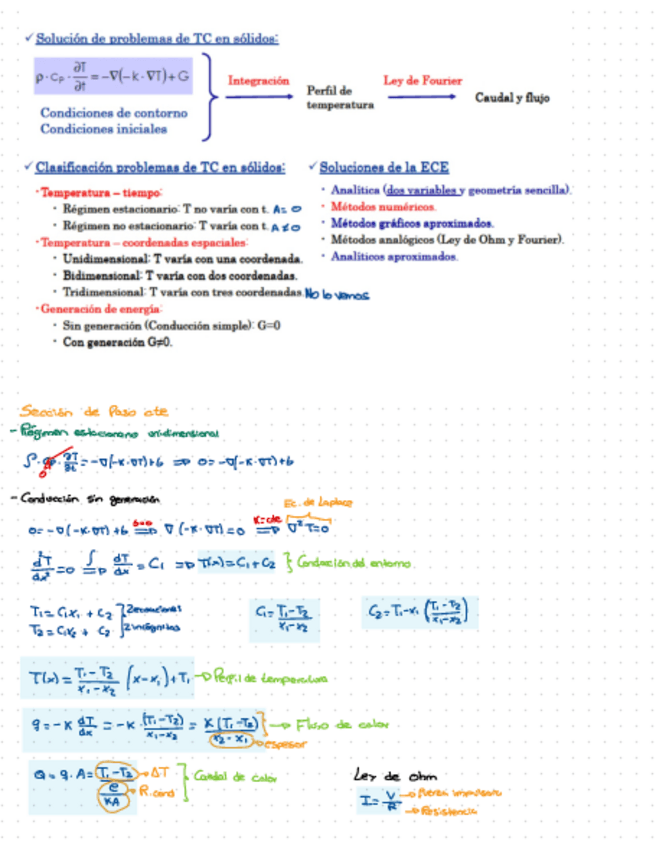 ✓ Solución de problemas de TC en sólidos:
ρ·cₚ·∂T/∂t = -∇(-k·∇T)+G
Condiciones de contorno
Condiciones iniciales
Integración
Perfil de temperatura
Ley de Fourier
Caudal y flujo
✓ Clasificación problemas de TC en sólidos:
· Temperatura – tiempo:
· Régimen estacionario: T no varía con t. A = 0
· Régimen no estacionario: T varía con t. A ≠ 0
· Temperatura – coordenadas espaciales:
· Unidimensional: T varía con una coordenada.
· Bidimensional: T varía con dos coordenadas.
· Tridimensional: T varía con tres coordenadas. No lo vemos
· Generación de energía:
· Sin generación (Conducción simple): G=0
· Con generación G≠0.
✓ Soluciones de la ECE
· Analítica (dos variables y geometría sencilla).
· Métodos numéricos.
· Métodos gráficos aproximados.
· Métodos analógicos (Ley de Ohm y Fourier).
· Analíticos aproximados.
Sección de Paso cte
- Régimen estacionario unidimensional
∂T/∂t = -∇(-k·∇T)+G ⇒ 0 = -∇(-k·∇T)+G
- Conducción sin generación
Ec. de Laplace
0 = -∇(-k·∇T)+G G=0 ⇒ ∇(-k·∇T)=0 k=cte ⇒ ∇²T=0
d²T/dx² = 0 ∫⇒ dT/dx = C₁ ⇒ T(x) = C₁ + C₂ } Condición del entorno
T₁ = C₁x₁ + C₂ } 2 ecuaciones
T₂ = C₁x₂ + C₂ } 2 incógnitas
C₁ = T₁-T₂/x₁-x₂
C₂ = T₁-x₁ (T₁-T₂/x₁-x₂)
T(x) = T₁-T₂/x₁-x₂ (x-x₁)+T₁ → Perfil de temperatura
q = -k dT/dx = -k·(T₁-T₂)/x₁-x₂ = k(T₁-T₂)/x₂-x₁ } → Flujo de calor
→ espesor
Q = q·A = T₁-T₂ / e/kA → ΔT → R.cond } Caudal de calor
Ley de ohm
I = V/R → Resistencia